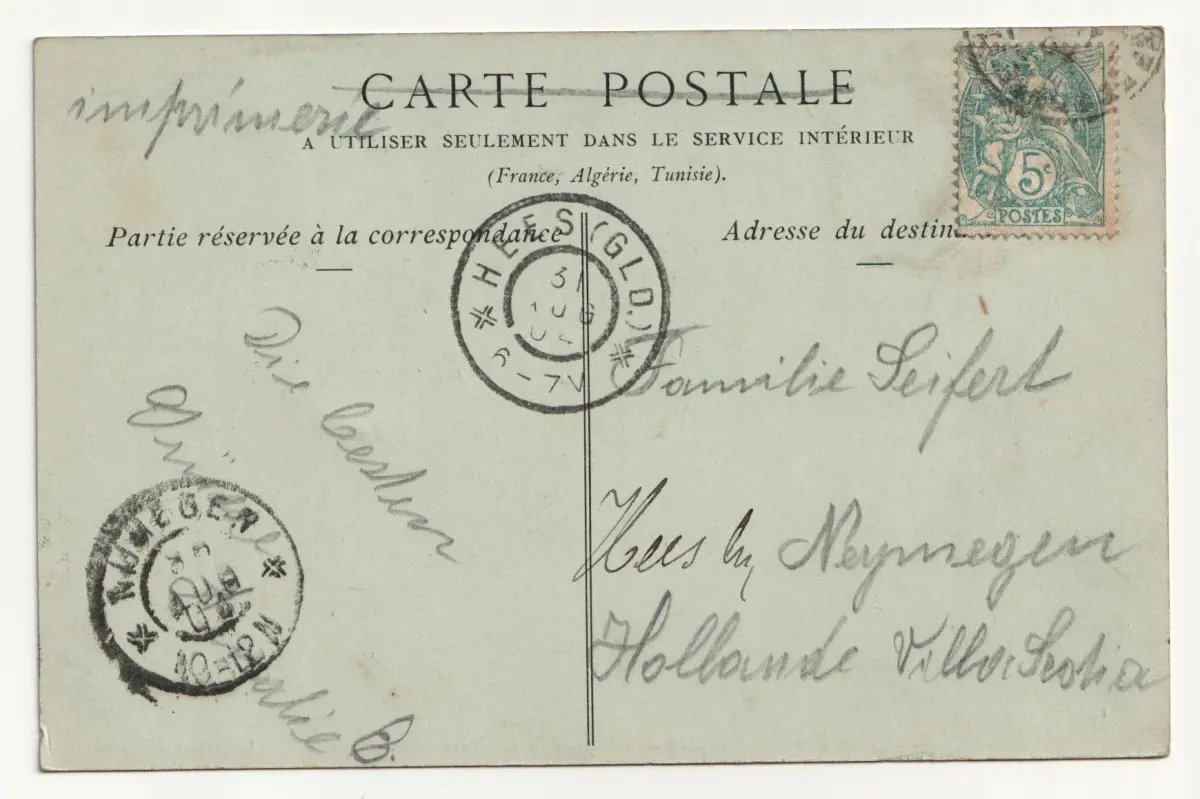 imprimerie
CARTE POSTALE
A UTILISER SEULEMENT DANS LE SERVICE INTÉRIEUR
(France, Algérie, Tunisie).
5c
POSTES
Partie réservée à la correspondance
Adresse du destin
HEES (GLD.)
31
AUG
6-7V
Familie Seifert
Hees by Neymegen
Hollande Villa Scotia
Die besten
Grüsse
NIJMEGEN
10-12N